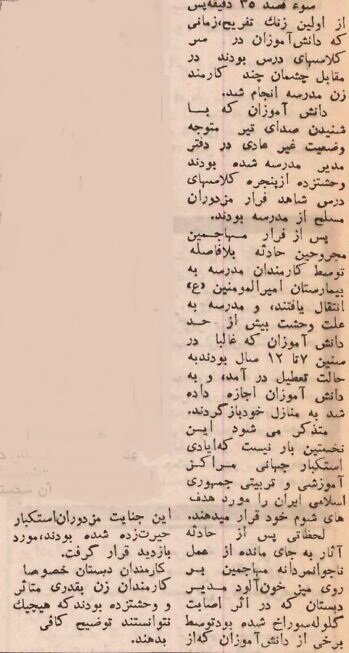 سوء قصد ۳۵ دقیقه‌پس
از اولین زنگ تفریح،زمانی
که دانش‌آموزان در سر
کلاسهای درس بودند در
مقابل چشمان چند کارمند
زن مدرسه انجام شد.
دانش آموزان که بــا
شنیدن صدای تیر متوجه
وضعیت غیر عادی در دفتر
مدیر مدرسه شده بودند
وحشتزده ازپنجره کلاسهای
درس شاهد فرار مزدوران
مسلح از مدرسه بودند.
پس از فرار مهاجمین
مجروحین حادثه بلافاصله
توسط کارمندان مدرسه به
بیمارستان امیرالمومنین (ع)
انتقال یافتند، و مدرسه به
علت وحشت بیش از حــد
دانش آموزان که غالبا در
سنین ۷تا ۱۲ سال بودندبه
حالت تعطیل در آمد، و به
دانش آموزان اجازه داده
شد به منازل خودبازگردند.
متذکر می شود ایــن
نخستین بار نیست که‌ایادی
استکبار جهانی مراکــز
آموزشی و تربیتی جمهوری
اسلامی ایران را مورد هدف
های شوم خود قرار میدهند.
لحظاتی پس از حادثه
آثار به جای مانده از عمل
ناجوانمردانه مهاجمین بــر
روی میز خون‌آلود مدیــر
دبستان که در اثر اصابت
گلوله‌سوراخ شده بودتوسط
برخی از دانش‌آموزان که‌از
این جنایت مزدوران‌استکبار
حیرت‌زده شده بودند،مورد
بازدید قرار گرفت.
کارمندان دبستان خصوصا
کارمندان زن بقدری متاثر
و وحشتزده بودندکه هیچیك
نتوانستند توضیح کافی
بدهند.